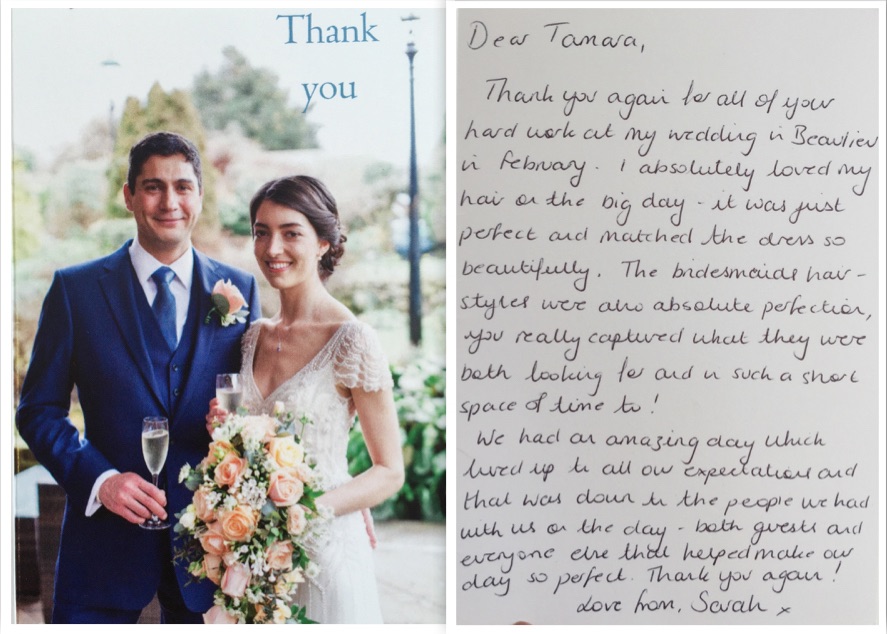 Thank
you
Dear Tamara,
Thank you again for all of your
hard work at my wedding in Beaulieu
in February. I absolutely loved my
hair on the big day - it was just
perfect and matched the dress so
beautifully. The bridesmaids hair-
styles were also absolute perfection,
you really captured what they were
both looking for and in such a short
space of time to!
We had an amazing day which
lived up to all our expectations and
that was down to the people we had
with us on the day - both guests and
everyone else that helped make our
day so perfect. Thank you again!
Love from, Sarah x